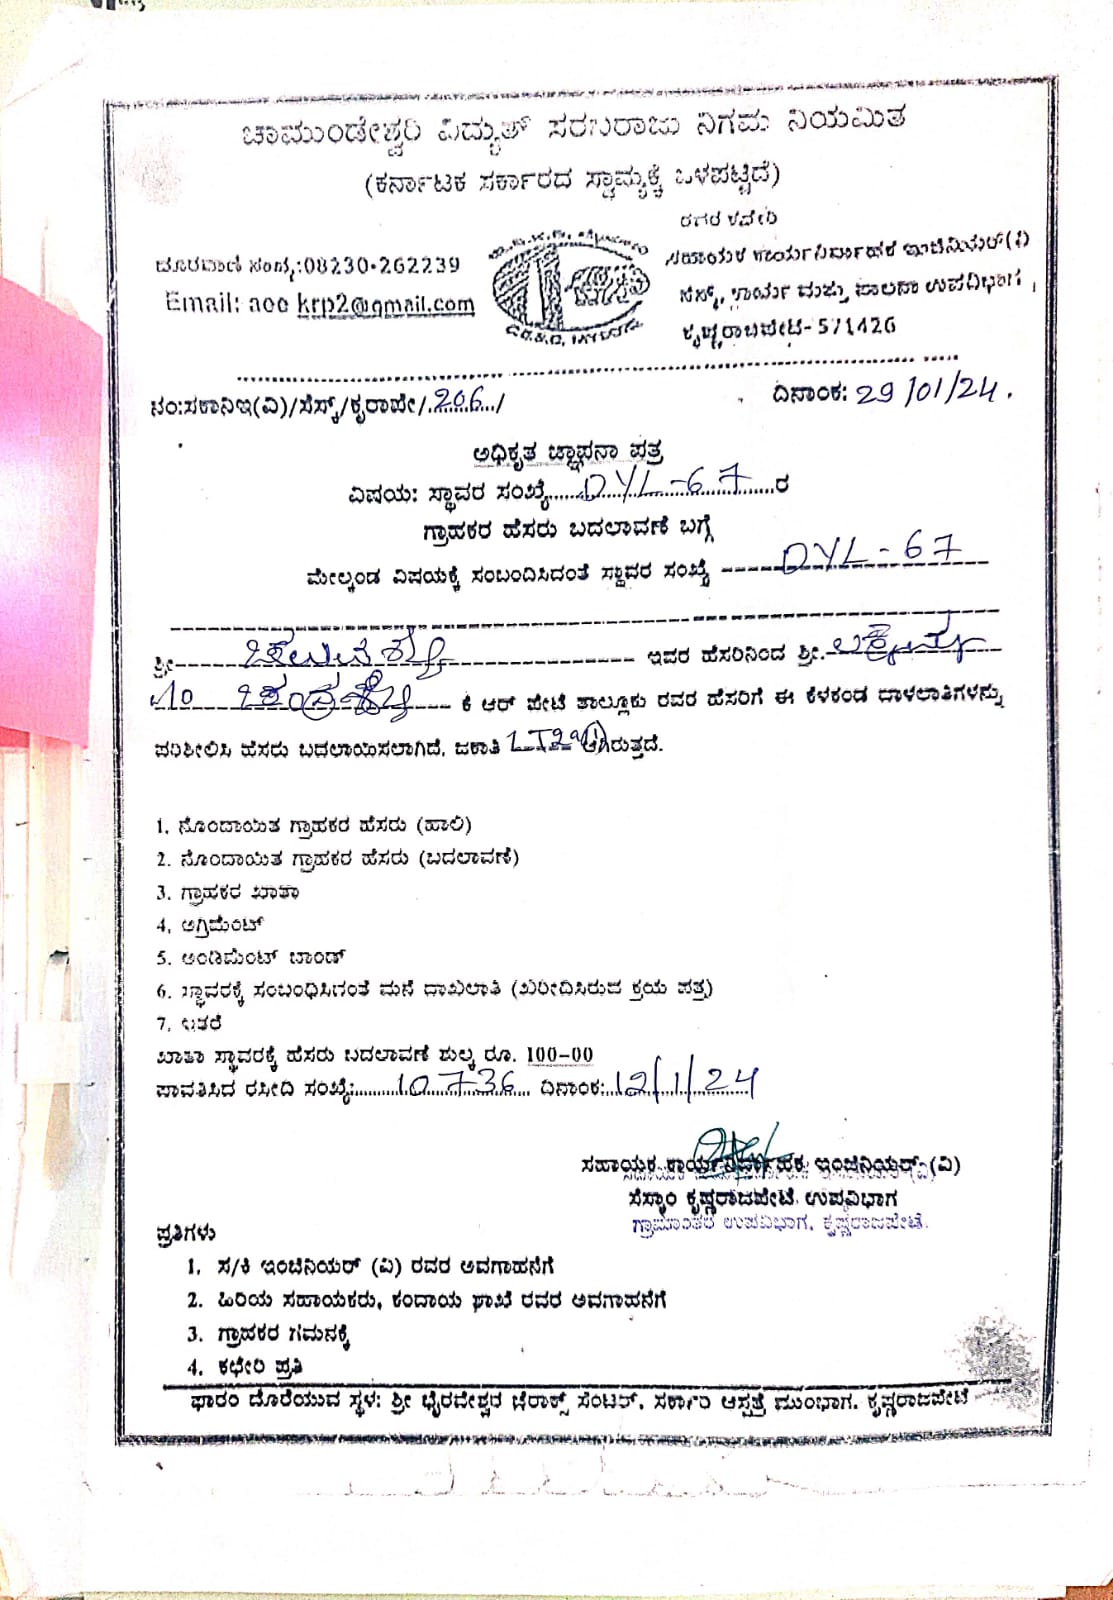 ಚಾಮುಂಡೇಶ್ವರಿ ವಿದ್ಯುತ್ ಸರಬರಾಜು ನಿಗಮ ನಿಯಮಿತ
(ಕರ್ನಾಟಕ ಸರ್ಕಾರದ ಸ್ವಾಮ್ಯಕ್ಕೆ ಒಳಪಟ್ಟಿದೆ)
ದೂರವಾಣಿ ಸಂಖ್ಯೆ:08230-262239
Email: aee krp2@gmail.com
ಸಹಾಯಕ ಕಾರ್ಯನಿರ್ವಾಹಕ ಇಂಜಿನಿಯರ್(ವಿ)
ಸೆಸ್ಕ್, ಕಾರ್ಯ ಮತ್ತು ಪಾಲನಾ ಉಪವಿಭಾಗ,
ಕೃಷ್ಣರಾಜಪೇಟೆ-571426
ನಂ:ಸಕಾನಿಇ(ವಿ)/ಸೆಸ್ಕ್/ಕೃರಾಪೇ/.206./
ದಿನಾಂಕ: 29/01/24.
ಅಧಿಕೃತ ಜ್ಞಾಪನಾ ಪತ್ರ
ವಿಷಯ: ಸ್ಥಾವರ ಸಂಖ್ಯೆ.....DYL-67.....ರ
ಗ್ರಾಹಕರ ಹೆಸರು ಬದಲಾವಣೆ ಬಗ್ಗೆ
ಮೇಲ್ಕಂಡ ವಿಷಯಕ್ಕೆ ಸಂಬಂದಿಸಿದಂತೆ ಸ್ಥಾವರ ಸಂಖ್ಯೆ DYL-67
ಶ್ರೀ ಇವರ ಹೆಸರಿನಿಂದ ಶ್ರೀ.
ಕೆ ಆರ್ ಪೇಟೆ ತಾಲ್ಲೂಕು ರವರ ಹೆಸರಿಗೆ ಈ ಕೆಳಕಂಡ ದಾಳಲಾತಿಗಳನ್ನು
ಪರಿಶೀಲಿಸಿ ಹೆಸರು ಬದಲಾಯಿಸಲಾಗಿದೆ. ಜಕಾತಿ ಆಗಿರುತ್ತದೆ.
1. ನೊಂದಾಯಿತ ಗ್ರಾಹಕರ ಹೆಸರು (ಹಾಲಿ)
2. ನೊಂದಾಯಿತ ಗ್ರಾಹಕರ ಹೆಸರು (ಬದಲಾವಣೆ)
3. ಗ್ರಾಹಕರ ಖಾತಾ
4. ಅಗ್ರಿಮೆಂಟ್
5. ಅಂಡಿಮೆಂಟ್ ಬಾಂಡ್
6. ಸ್ಥಾವರಕ್ಕೆ ಸಂಬಂಧಿಸಿದಂತೆ ಮನೆ ದಾಖಲಾತಿ (ಖರೀದಿಸಿರುವ ಕ್ರಯ ಪತ್ರ)
7. ಇತರೆ
ಖಾತಾ ಸ್ಥಾವರಕ್ಕೆ ಹೆಸರು ಬದಲಾವಣೆ ಶುಲ್ಕ ರೂ. 100-00
ಪಾವತಿಸಿದ ರಸೀದಿ ಸಂಖ್ಯೆ:.....10736..... ದಿನಾಂಕ:..12/1/24
ಸಹಾಯಕ ಕಾರ್ಯನಿರ್ವಾಹಕ ಇಂಜಿನಿಯರ್ (ವಿ)
ಸೆಸ್ಕಾಂ ಕೃಷ್ಣರಾಜಪೇಟೆ ಉಪವಿಭಾಗ
ಗ್ರಾಮಾಂತರ ಉಪವಿಭಾಗ, ಕೃಷ್ಣರಾಜಪೇಟೆ.
ಪ್ರತಿಗಳು
1. ಸ/ಕಿ ಇಂಜಿನಿಯರ್ (ವಿ) ರವರ ಅವಗಾಹನೆಗೆ
2. ಹಿರಿಯ ಸಹಾಯಕರು, ಕಂದಾಯ ಶಾಖೆ ರವರ ಅವಗಾಹನೆಗೆ
3. ಗ್ರಾಹಕರ ಗಮನಕ್ಕೆ
4. ಕಛೇರಿ ಪ್ರತಿ
ಫಾರಂ ದೊರೆಯುವ ಸ್ಥಳ: ಶ್ರೀ ಭೈರವೇಶ್ವರ ಜೆರಾಕ್ಸ್ ಸೆಂಟರ್. ಸರ್ಕಾರಿ ಆಸ್ಪತ್ರೆ ಮುಂಭಾಗ. ಕೃಷ್ಣರಾಜಪೇಟೆ